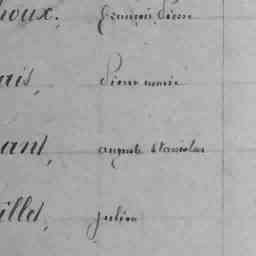 houx, françois Pierre
ais, Pierre marie
ant, auguste stanislas
illet, julien